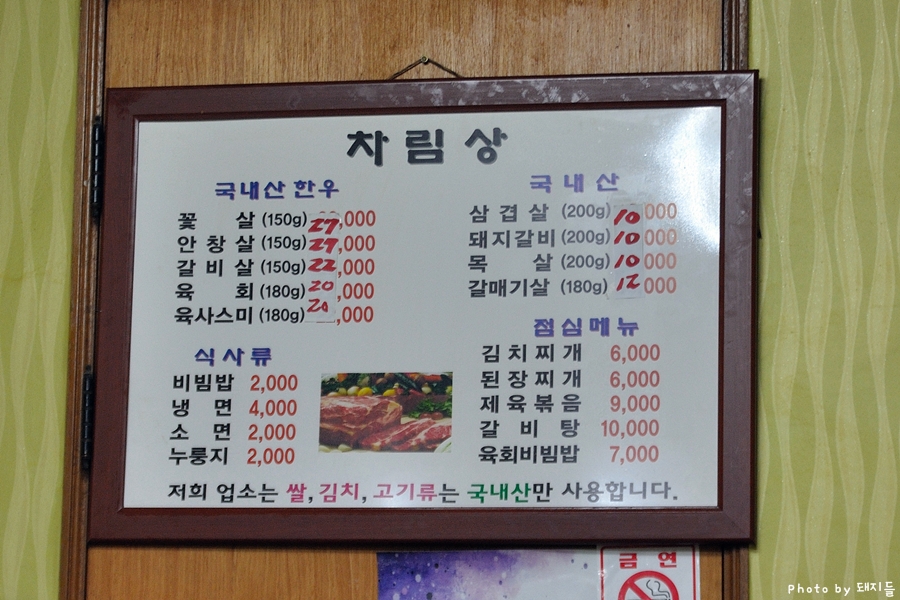 차림상
국내산 한우
꽃 살 (150g) 27,000
안창살 (150g) 27,000
갈비살 (150g) 22,000
육 회 (180g) 20,000
육사스미 (180g) 20,000
식사류
비빔밥 2,000
냉 면 4,000
소 면 2,000
누룽지 2,000
국내산
삼겹살 (200g) 10 000
돼지갈비 (200g) 10 000
목 살 (200g) 10 000
갈매기살 (180g) 12 000
점심메뉴
김치찌개 6,000
된장찌개 6,000
제육볶음 9,000
갈비탕 10,000
육회비빔밥 7,000
저희 업소는 쌀, 김치, 고기류는 국내산만 사용합니다.
금연
Photo by 돼지들